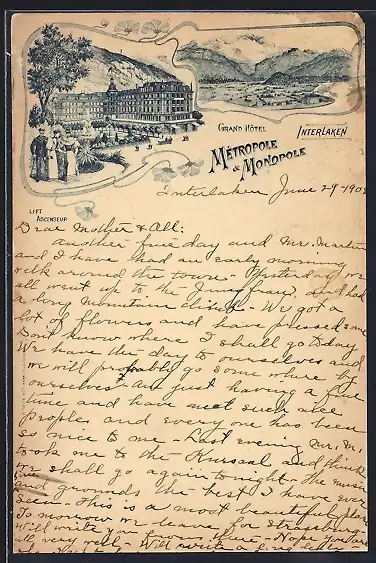 GRAND HÔTEL
INTERLAKEN
MÉTROPOLE
& MONOPOLE
LIFT
ASCENSEUR
Interlaken June 29 190
Dear Mother & All:
Another fine day and Mr. Martin
and I have had an early morning
walk around the town - Yesterday we
all went up to the Jungfrau, and had
a long mountain climb - We got a
lot of flowers and have pressed some
Don't know where I shall go today
We have the day to ourselves and
we will probably go some where by
ourselves - Am just having a fine
time and have met such nice
peoples and every one has been
so nice to me - Last evening Mr. M.
took me to the Kursaal and think
we shall go again tonight - The music
and grounds the best I have ever
seen - This is a most beautiful place
Tomorrow we leave for Strassburg
Will write you from there - Hope you are
all very well - Will write a long